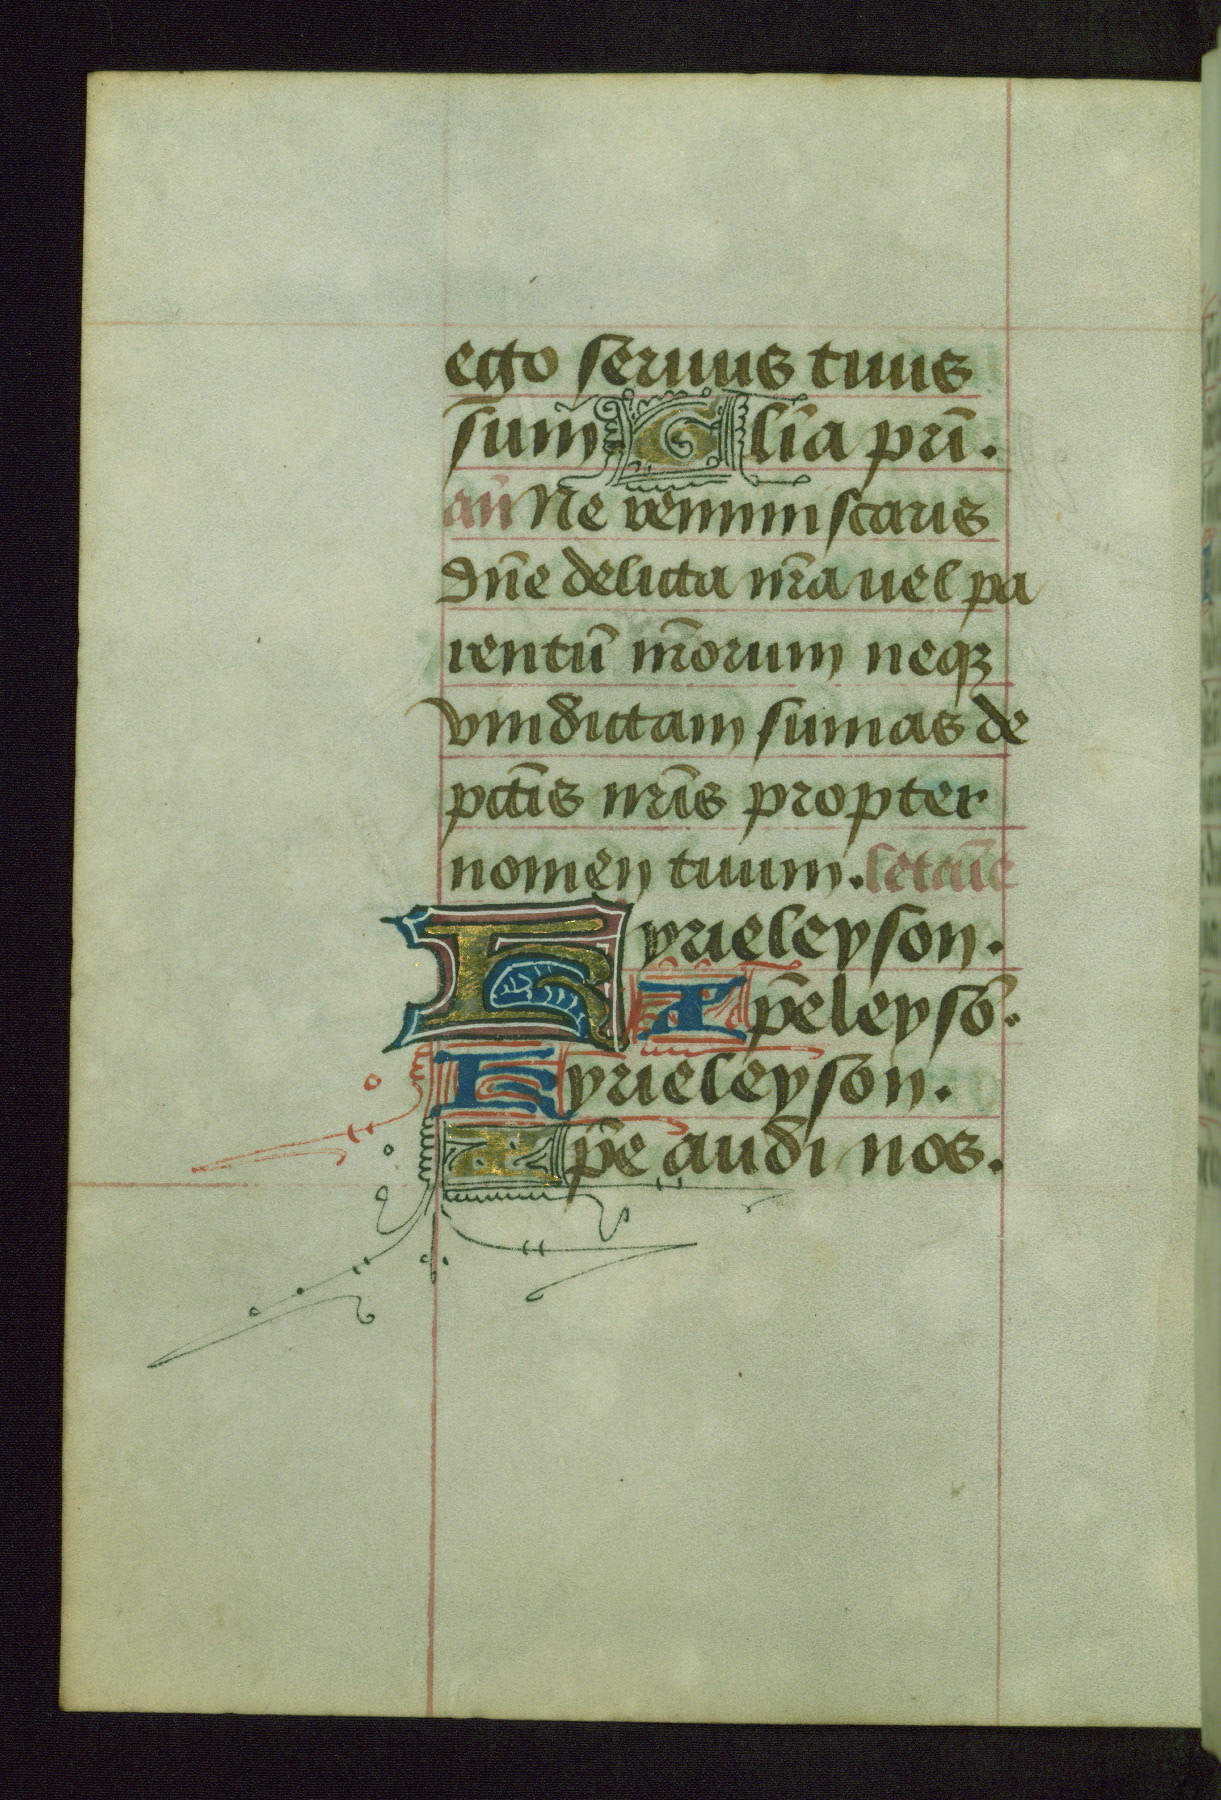 ego seruus tuus
sum Glīa prī.
añ Ne reminiscaris
dñe delicta nr̄a uel pa
rentū nr̄orum neqꝫ
vindictam sumas de
pctīs nr̄is propter
nomen tuum. letañe
Kyrieleyson.
Xp̄eleysō.
Kyrieleyson.
Xp̄e audi nos.